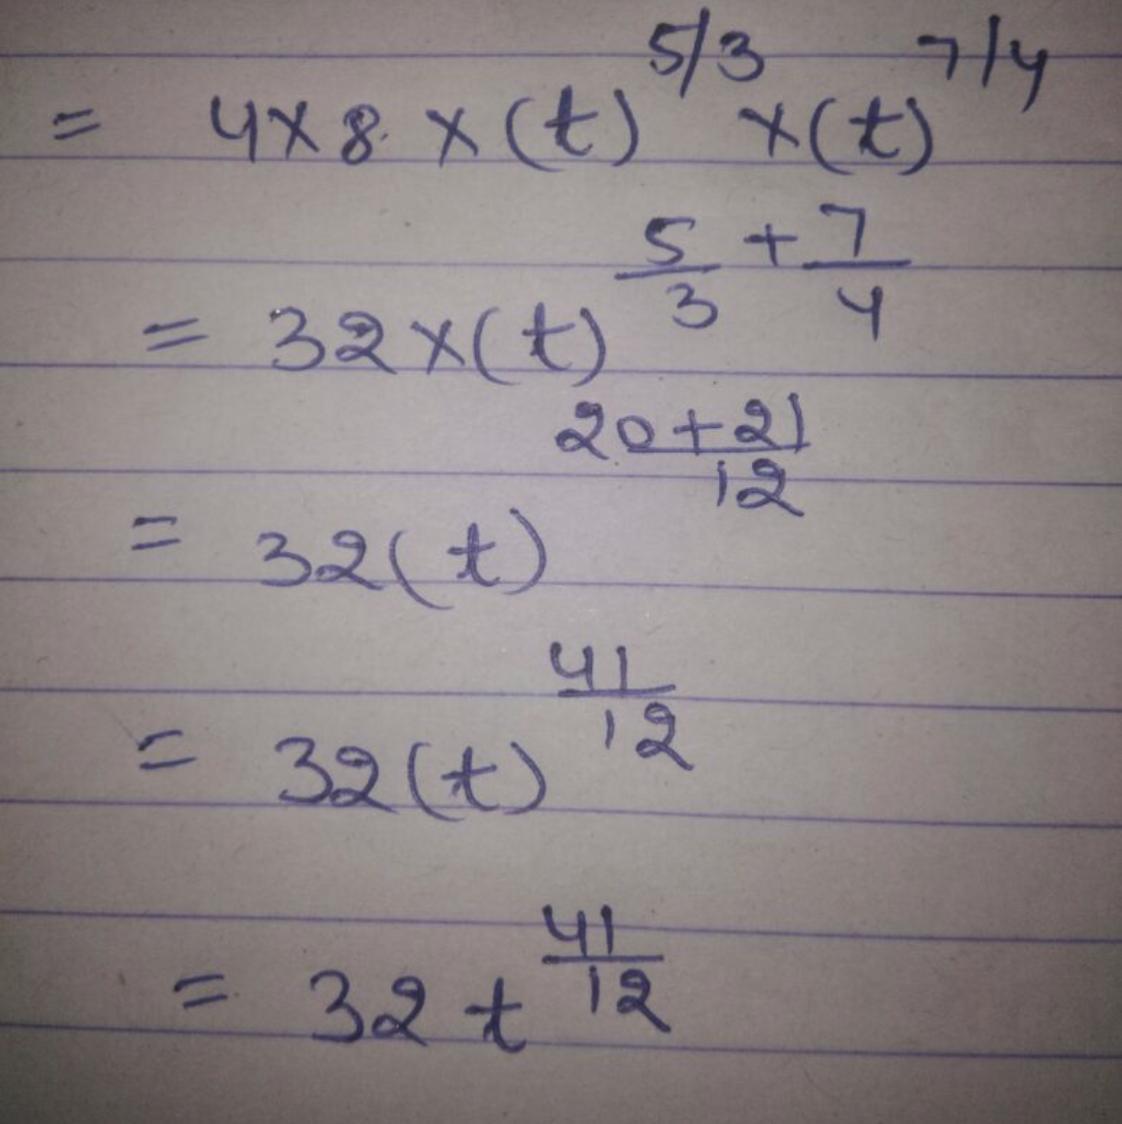 = 4×8 ×(t)^5/3 ×(t)^7/4
= 32×(t)^5/3 + 7/4
= 32(t)^20+21/12
= 32(t)^41/12
= 32 t^41/12